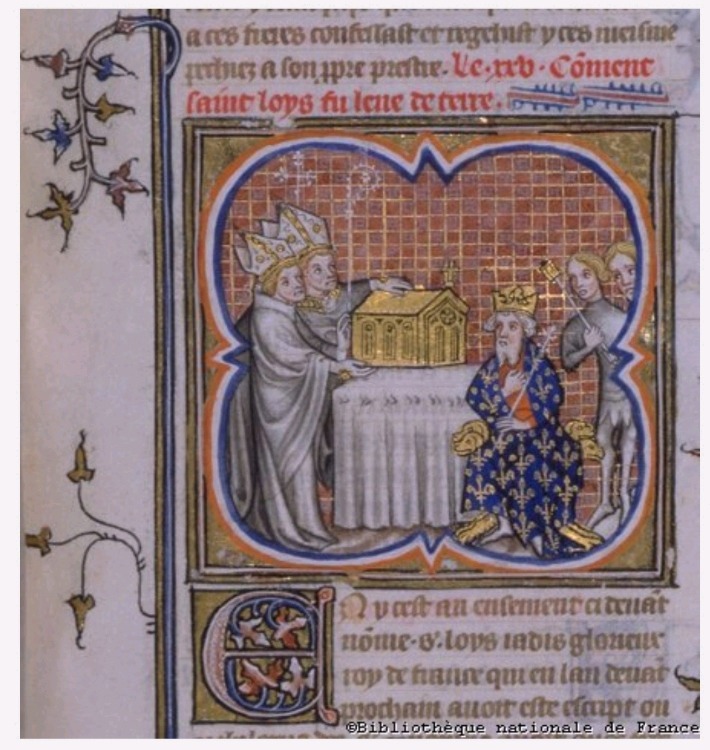 a ces freres confessast et regehist yces meisme
pechiez a son ppre prestre. Le .xxv. Cōment
saint loys fu leue de terre.
En ycest an ensement ci deuāt
nōme .s. loys iadis glorieux
roy de france qui en lan deuāt
prochain auoit este escript ou
©Bibliothèque nationale de France